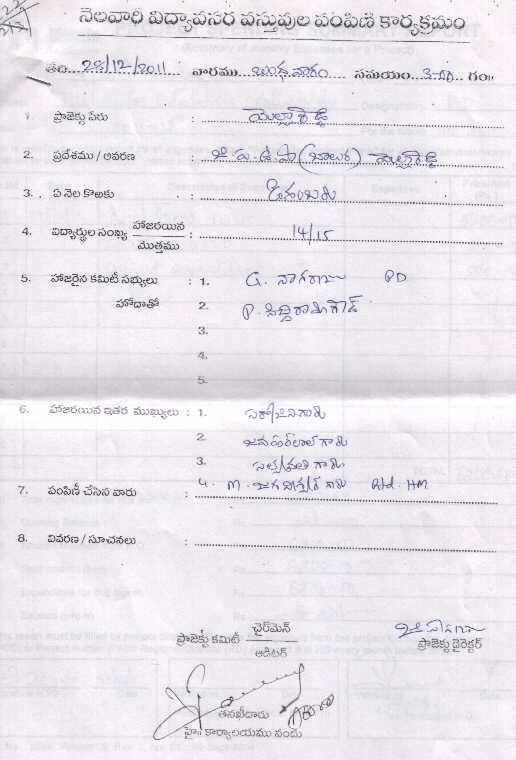 నెలవారి విద్యావసర వస్తువుల పంపిణి కార్యక్రమం
తేది 28/12/2011 వారము బుధవారం సమయం 3-00 గం॥
1. ప్రాజెక్టు పేరు : యెల్లారెడ్డి
2. ప్రదేశము / ఆవరణ : జి.ప.ఉ.పా (బాలుర) యెల్లారెడ్డి
3. ఏ నెల కొఱకు : డిసెంబరు
4. విద్యార్థుల సంఖ్య హాజరయిన / మొత్తము : 14/15
5. హాజరైన కమిటీ సభ్యులు : 1. G. నాగరాజు PD
హోదాతో 2. P. సిద్ధిరామాగౌడ్
3.
4.
5.
6. హాజరయిన ఇతర ముఖ్యులు : 1. సరోజినిగారు
2. జవహర్‌లాల్ గారు
3. సత్యవతి గారు
7. పంపిణీ చేసిన వారు : 4. M. గారు Rtd. HM
8. వివరణ / సూచనలు :
ప్రాజెక్టు కమిటీ ఛైర్‌మెన్ / ఆడిటర్
ప్రాజెక్టు డైరెక్టర్
తనఖీదారు
హై॥ కార్యాలయము నందు